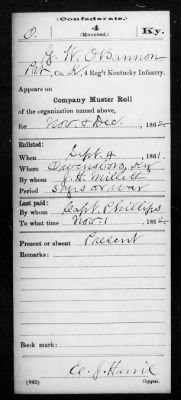 (Confederate.)
O. 4 Ky.
(Mounted.)
G. W. O'Bannon
Pvt, Co. K, 4 Reg't Kentucky Infantry.
Appears on
Company Muster Roll
of the organization named above,
for Nov. & Dec., 1862.
Enlisted:
When Sept. 4, 1861.
Where Owensboro, Ky
By whom J. H. Millett
Period 3 yrs or war
Last paid:
By whom Capt. Phillips
To what time Nov. 1, 1862.
Present or absent Present
Remarks:
Book mark:
(642) Copyist.